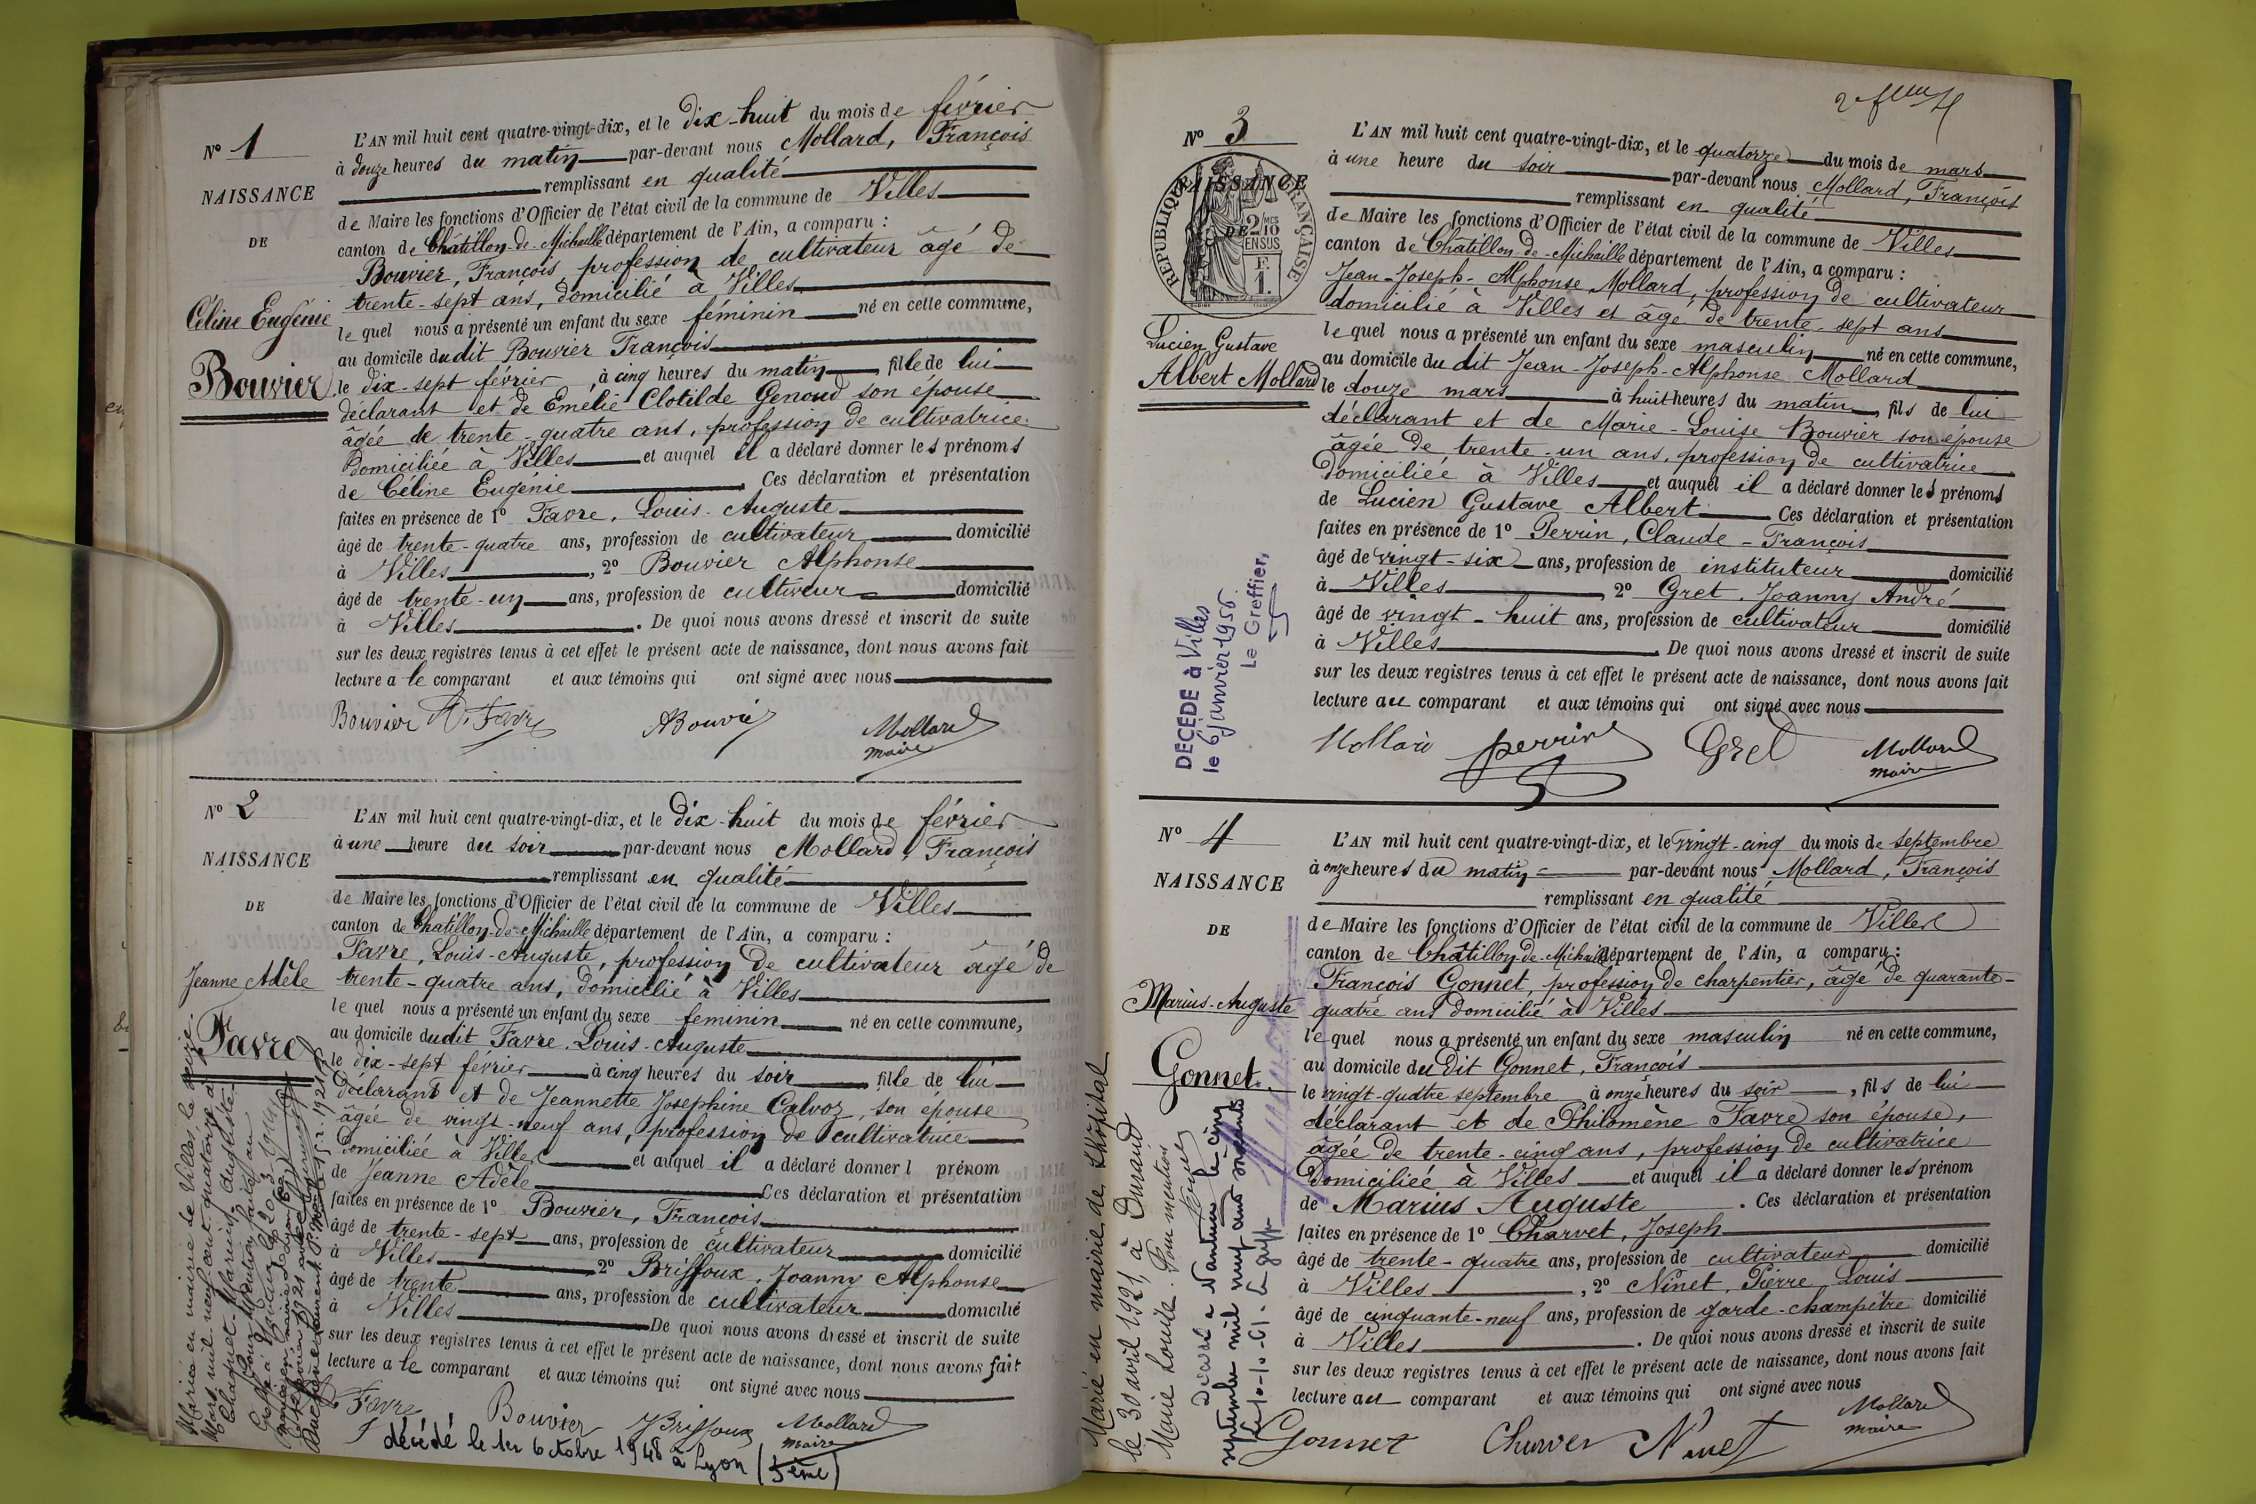 N° 1
NAISSANCE
DE
Céline Eugénie
Bouvier
L'AN mil huit cent quatre-vingt-dix, et le dix-huit du mois de février
à douze heures du matin par-devant nous Mollard, François
remplissant en qualité
de Maire les fonctions d'Officier de l'état civil de la commune de Villes
canton de Châtillon-de-Michaille département de l'Ain, a comparu :
Bouvier, François, profession de cultivateur âgé de
trente-sept ans, domicilié à Villes
le quel nous a présenté un enfant du sexe féminin né en cette commune,
au domicile du dit Bouvier François
le dix-sept février à cinq heures du matin, fille de lui
déclarant et de Emélie Clotilde Genoud son épouse
âgée de trente-quatre ans, profession de cultivatrice
Domiciliée à Villes et auquel il a déclaré donner les prénoms
de Céline Eugénie. Ces déclaration et présentation
faites en présence de 1° Favre, Louis-Auguste
âgé de trente-quatre ans, profession de cultivateur domicilié
à Villes, 2° Bouvier Alphonse
âgé de trente-un ans, profession de cultiveur domicilié
à Villes. De quoi nous avons dressé et inscrit de suite
sur les deux registres tenus à cet effet le présent acte de naissance, dont nous avons fait
lecture a le comparant et aux témoins qui ont signé avec nous
Bouvier Favre ABouvier Mollard
maire
N° 2
NAISSANCE
DE
Jeanne Adèle
Favre
L'AN mil huit cent quatre-vingt-dix, et le dix-huit du mois de février
à une heure du soir par-devant nous Mollard, François
remplissant en qualité
de Maire les fonctions d'Officier de l'état civil de la commune de Villes
canton de Chatillon-de-Michaille département de l'Ain, a comparu :
Favre, Louis-Auguste, profession de cultivateur âgé de
trente-quatre ans, domicilié à Villes
le quel nous a présenté un enfant du sexe feminin né en cette commune,
au domicile du dit Favre, Louis-Auguste
le dix-sept février à cinq heures du soir fille de lui
déclarant et de Jeannette Josephine Calvoz, son épouse
âgée de vingt-neuf ans, profession de cultivatrice
Domiciliée à Villes et auquel il a déclaré donner l prénom
de Jeanne Adèle Ces déclaration et présentation
faites en présence de 1° Bouvier, François
âgé de trente-sept ans, profession de cultivateur domicilié
à Villes 2° Briffoux, Joanny Alphonse
âgé de trente ans, profession de cultivateur domicilié
à Villes De quoi nous avons dressé et inscrit de suite
sur les deux registres tenus à cet effet le présent acte de naissance, dont nous avons fait
lecture a le comparant et aux témoins qui ont signé avec nous
Favre Bouvier JBriffoux Mollard
maire
décédé le 1er octobre 1948 à Lyon (3ème)
Mariée en mairie de Villes le onze
Mars mil neuf cent quatorze à
Chaquet-Marius, Auguste
Pour mention
N° 3
NAISSANCE
DE
RÉPUBLIQUE FRANÇAISE
2/10
EN SUS
F.
1.
Lucien Gustave
Albert Mollard
L'AN mil huit cent quatre-vingt-dix, et le quatorze du mois de mars
à une heure du soir par-devant nous Mollard, François
remplissant en qualité
de Maire les fonctions d'Officier de l'état civil de la commune de Villes
canton de Châtillon-de-Michaille département de l'Ain, a comparu :
Jean-Joseph-Alphonse Mollard, profession de cultivateur
domicilié à Villes et âgé de trente-sept ans
le quel nous a présenté un enfant du sexe masculin né en cette commune,
au domicile du dit Jean-Joseph-Alphonse Mollard
le douze mars à huit heures du matin, fils de lui
déclarant et de Marie-Louise Bouvier son épouse
âgée de trente-un ans, profession de cultivatrice
Domiciliée à Villes et auquel il a déclaré donner les prénoms
de Lucien Gustave Albert Ces déclaration et présentation
faites en présence de 1° Perrin, Claude-François
âgé de vingt-six ans, profession de instituteur domicilié
à Villes, 2° Gret, Joanny André
âgé de vingt-huit ans, profession de cultivateur domicilié
à Villes. De quoi nous avons dressé et inscrit de suite
sur les deux registres tenus à cet effet le présent acte de naissance, dont nous avons fait
lecture au comparant et aux témoins qui ont signé avec nous
Mollard perrin Gret Mollard
maire
DÉCÉDÉ à Villes
le 6 janvier 1956
Le Greffier,
N° 4
NAISSANCE
DE
Marius-Auguste
Gonnet
L'AN mil huit cent quatre-vingt-dix, et le vingt-cinq du mois de septembre
à onze heures du matin par-devant nous Mollard, François
remplissant en qualité
de Maire les fonctions d'Officier de l'état civil de la commune de Villes
canton de Châtillon-de-Michaille département de l'Ain, a comparu :
François Gonnet, profession de charpentier, âgé de quarante-
quatre ans domicilié à Villes
le quel nous a présenté un enfant du sexe masculin né en cette commune,
au domicile du dit Gonnet, François
le vingt-quatre septembre à onze heures du soir, fils de lui
déclarant et de Philomène Favre son épouse,
âgée de trente-cinq ans, profession de cultivatrice
Domiciliée à Villes et auquel il a déclaré donner les prénom
de Marius Auguste. Ces déclaration et présentation
faites en présence de 1° Charvet, Joseph
âgé de trente-quatre ans, profession de cultivateur domicilié
à Villes, 2° Ninet, Pierre, Louis
âgé de cinquante-neuf ans, profession de garde-champêtre domicilié
à Villes. De quoi nous avons dressé et inscrit de suite
sur les deux registres tenus à cet effet le présent acte de naissance, dont nous avons fait
lecture au comparant et aux témoins qui ont signé avec nous
Gonnet Charvet Ninet Mollard
maire
Marié en mairie de Lhôpital
le 30 avril 1921, à Durand
Marie Louise. Pour mention
Décédé à Nantua le cinq
septembre mil neuf cent soixante